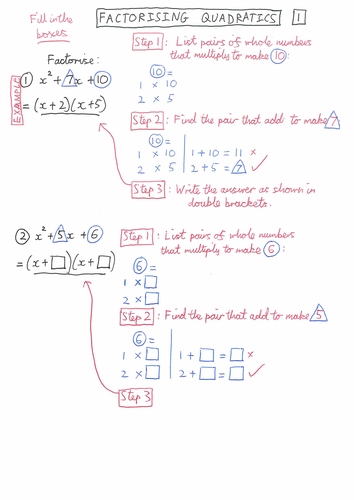 Fill in the boxes
FACTORISING QUADRATICS 1
Factorise:
EXAMPLE
① x² + 7x + 10
= (x + 2)(x + 5)
Step 1: List pairs of whole numbers
that multiply to make 10:
10 =
1 × 10
2 × 5
Step 2: Find the pair that add to make 7:
10 =
1 × 10 | 1 + 10 = 11 ×
2 × 5 | 2 + 5 = 7 ✓
Step 3: Write the answer as shown in
double brackets.
② x² + 5x + 6
= (x + □)(x + □)
Step 1: List pairs of whole numbers
that multiply to make 6:
6 =
1 × □
2 × □
Step 2: Find the pair that add to make 5
6 =
1 × □ | 1 + □ = □ ×
2 × □ | 2 + □ = □ ✓
Step 3